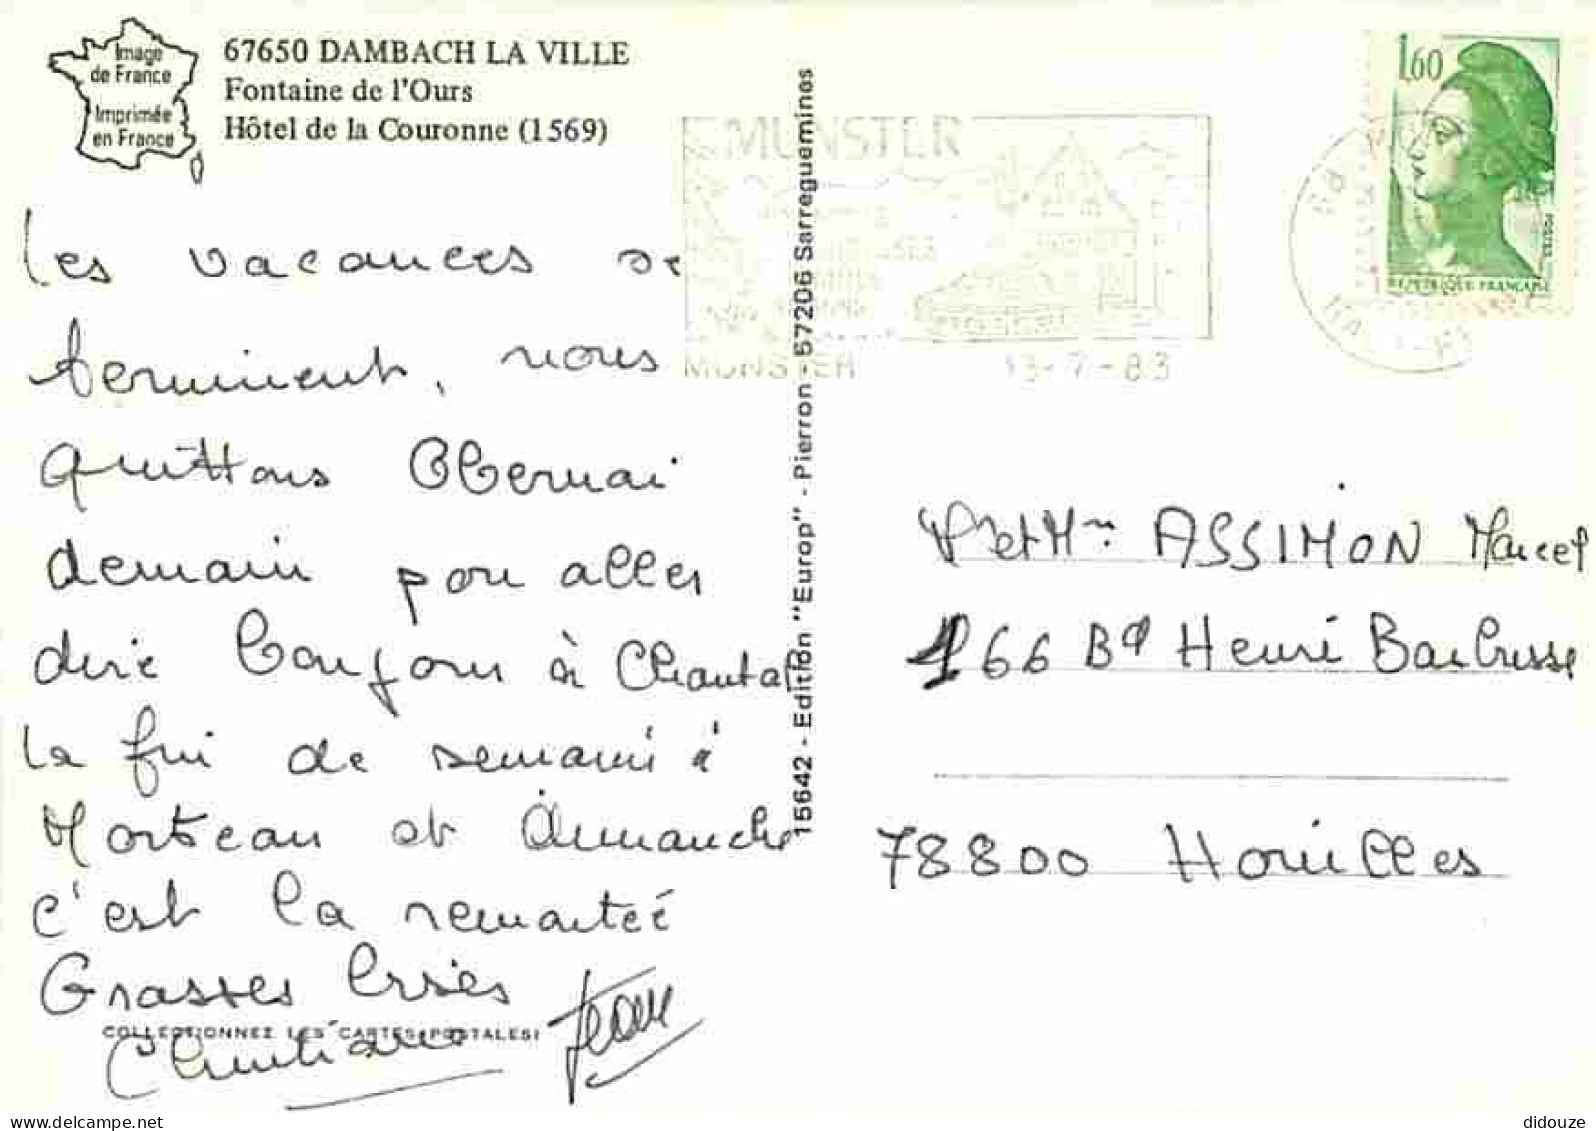 Image
de France
Imprimée
en France
67650 DAMBACH LA VILLE
Fontaine de l'Ours
Hôtel de la Couronne (1569)
MUNSTER
MUNSTER 13-7-83
1,60
POSTES
REPUBLIQUE FRANÇAISE
Les vacances se
terminent, nous
quittons Obernai
demain pou aller
dire bonjour à Chantal
la fin de semaine à
Morteau et dimanche
c'est la remontée
Grosses bises
Christiane Jean
COLLECTIONNEZ LES CARTES POSTALES!
15642 - Edition "Europ" - Pierron - 57206 Sarreguemines
Mr et Mme ASSIMON Marcel
166 Bd Henri Barbusse
78800 Houilles
didouze